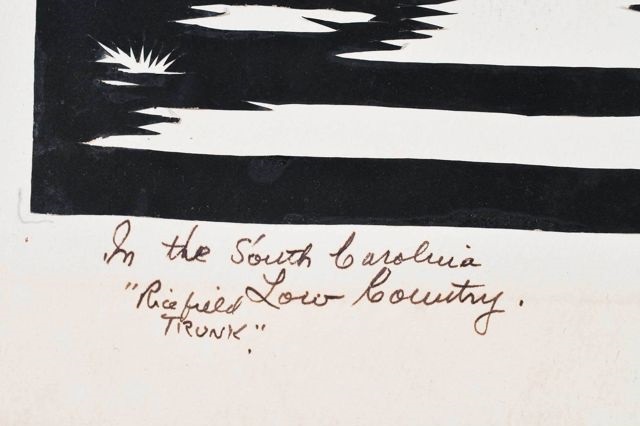 In the South Carolina
"Ricefield Low Country.
TRUNK".